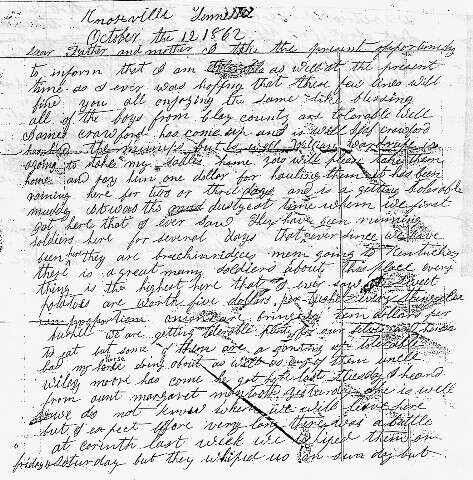 Knoxville Tennessee
October the 12 1862
Dear Father and mother I take the present opportunity
to inform that I am as well at the present
time as I ever was hopping that these few lines will
fine you all enjoying the same like blessing
all of the boys from Clay county are tolarable well
James Crawford has come up and is well Jeff Crawford
has the mumps but is well William is
agoing to take my sadle home you will pleas take them
home and pay him one dollar for hauling them it has been
raining here for two or three days and is a getting tolarable
muddy it was the dustyest time when we first
got here that I ever saw they have been running
soldiers here for several days that ever since we have
been here they are brechinridges mem going to Kentuckey
there is a great many soldiers about this place every
thing is the highest here that I ever saw sweet
potatoes are worth five dollars per bushel every
in proportion bringing ten dollars per
bushell we are getting tolerable plenty for our selves and horses
to eat but some of them are a gonting up tolerable
bad my horse is doing about as well as any of them uncll
Wiley moore has come he got here last tuesday I heard
from aunt margaret yesterday she is well
we do not know when we will leave here
but I expect before very long there was a battle
at corinth last week we whiped them on
friday & Saturday but they whiped us on sunday but